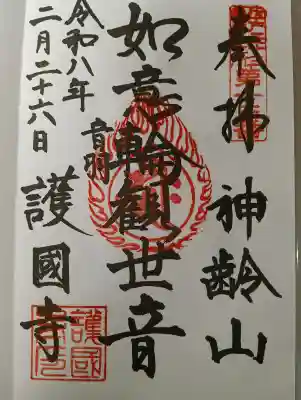 奉拝 神齢山
如意輪観世音
音羽 護國寺
令和八年
二月二十六日
護國